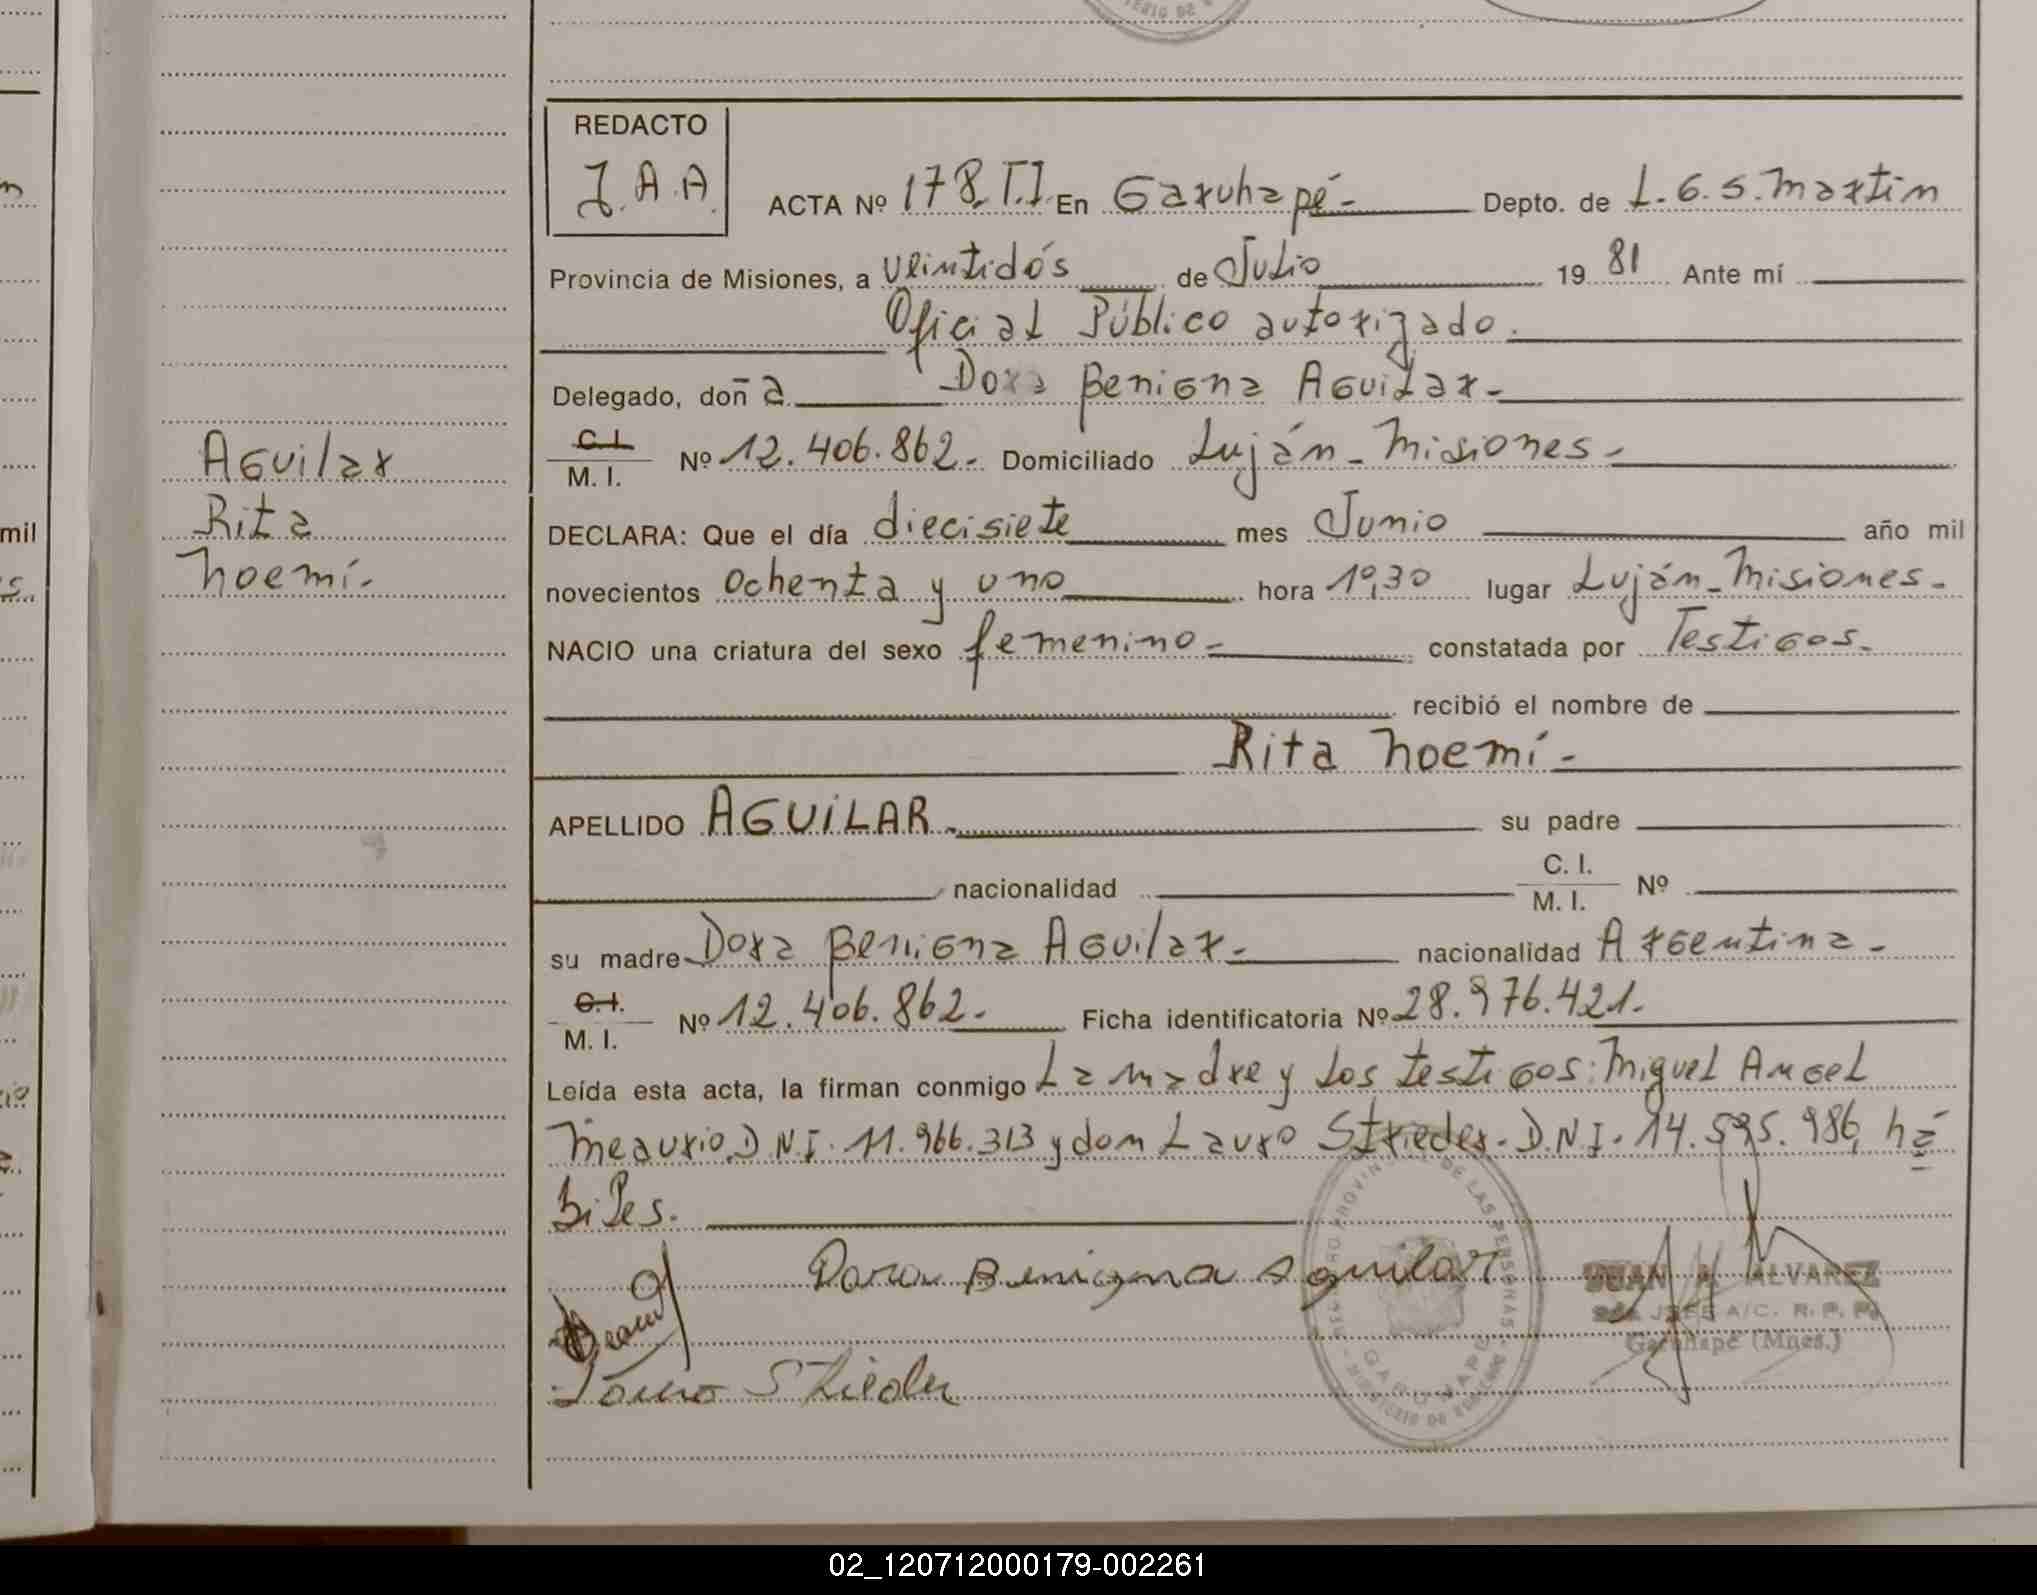 REDACTO
J.A.A.
ACTA Nº 178.T.I En Garuhapé- Depto. de L.G.S.Martin
Provincia de Misiones, a veintidós de Julio 19 81 Ante mí
Oficial Público autorizado.
Delegado, doña Dora Benigna Aguilar-
C.I.
M. I. Nº 12.406.862.- Domiciliado Luján-Misiones-
Aguilar
Rita
Noemí-
DECLARA: Que el día diecisiete mes Junio año mil
novecientos ochenta y uno hora 10,30 lugar Luján-Misiones-
NACIO una criatura del sexo femenino- constatada por Testigos.
recibió el nombre de
Rita Noemí-
APELLIDO AGUILAR.- su padre
nacionalidad C. I.
M. I. Nº
su madre Dora Benigna Aguilar- nacionalidad Argentina-
C.I.
M. I. Nº 12.406.862.- Ficha identificatoria Nº 28.976.421.
Leída esta acta, la firman conmigo La madre y los testigos: Miguel Angel
Meaurio D.N.I. 11.966.313 y don Lauro Strieder. D.N.I. 14.595.986, há
biles.
Dora Benigna Aguilar
JUAN A. ALVAREZ
A/C. R. P. P.
Garuhapé (Mnes.)
Lauro Strieder
mil
02_120712000179-002261